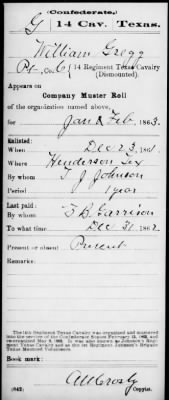 (Confederate.)
G | 14 Cav. | Texas.
William Gregg
Pt, Co. G, 14 Regiment Texas Cavalry
(Dismounted).
Appears on
Company Muster Roll
of the organization named above,
for Jan & Feb, 1863.
Enlisted:
When Dec 23, 1861.
Where Henderson Tex
By whom T J Johnson
Period 1 year
Last paid:
By whom F. B. Garrison
To what time Dec 31, 1862.
Present or absent Present
Remarks:
The 14th Regiment Texas Cavalry was organized and mustered
into the service of the Confederate States
Regiment Texas Cavalry and as the 1st Regiment Johnson's Brigade
Texas Mounted Volunteers.
Book mark:
(642)
Copyist.